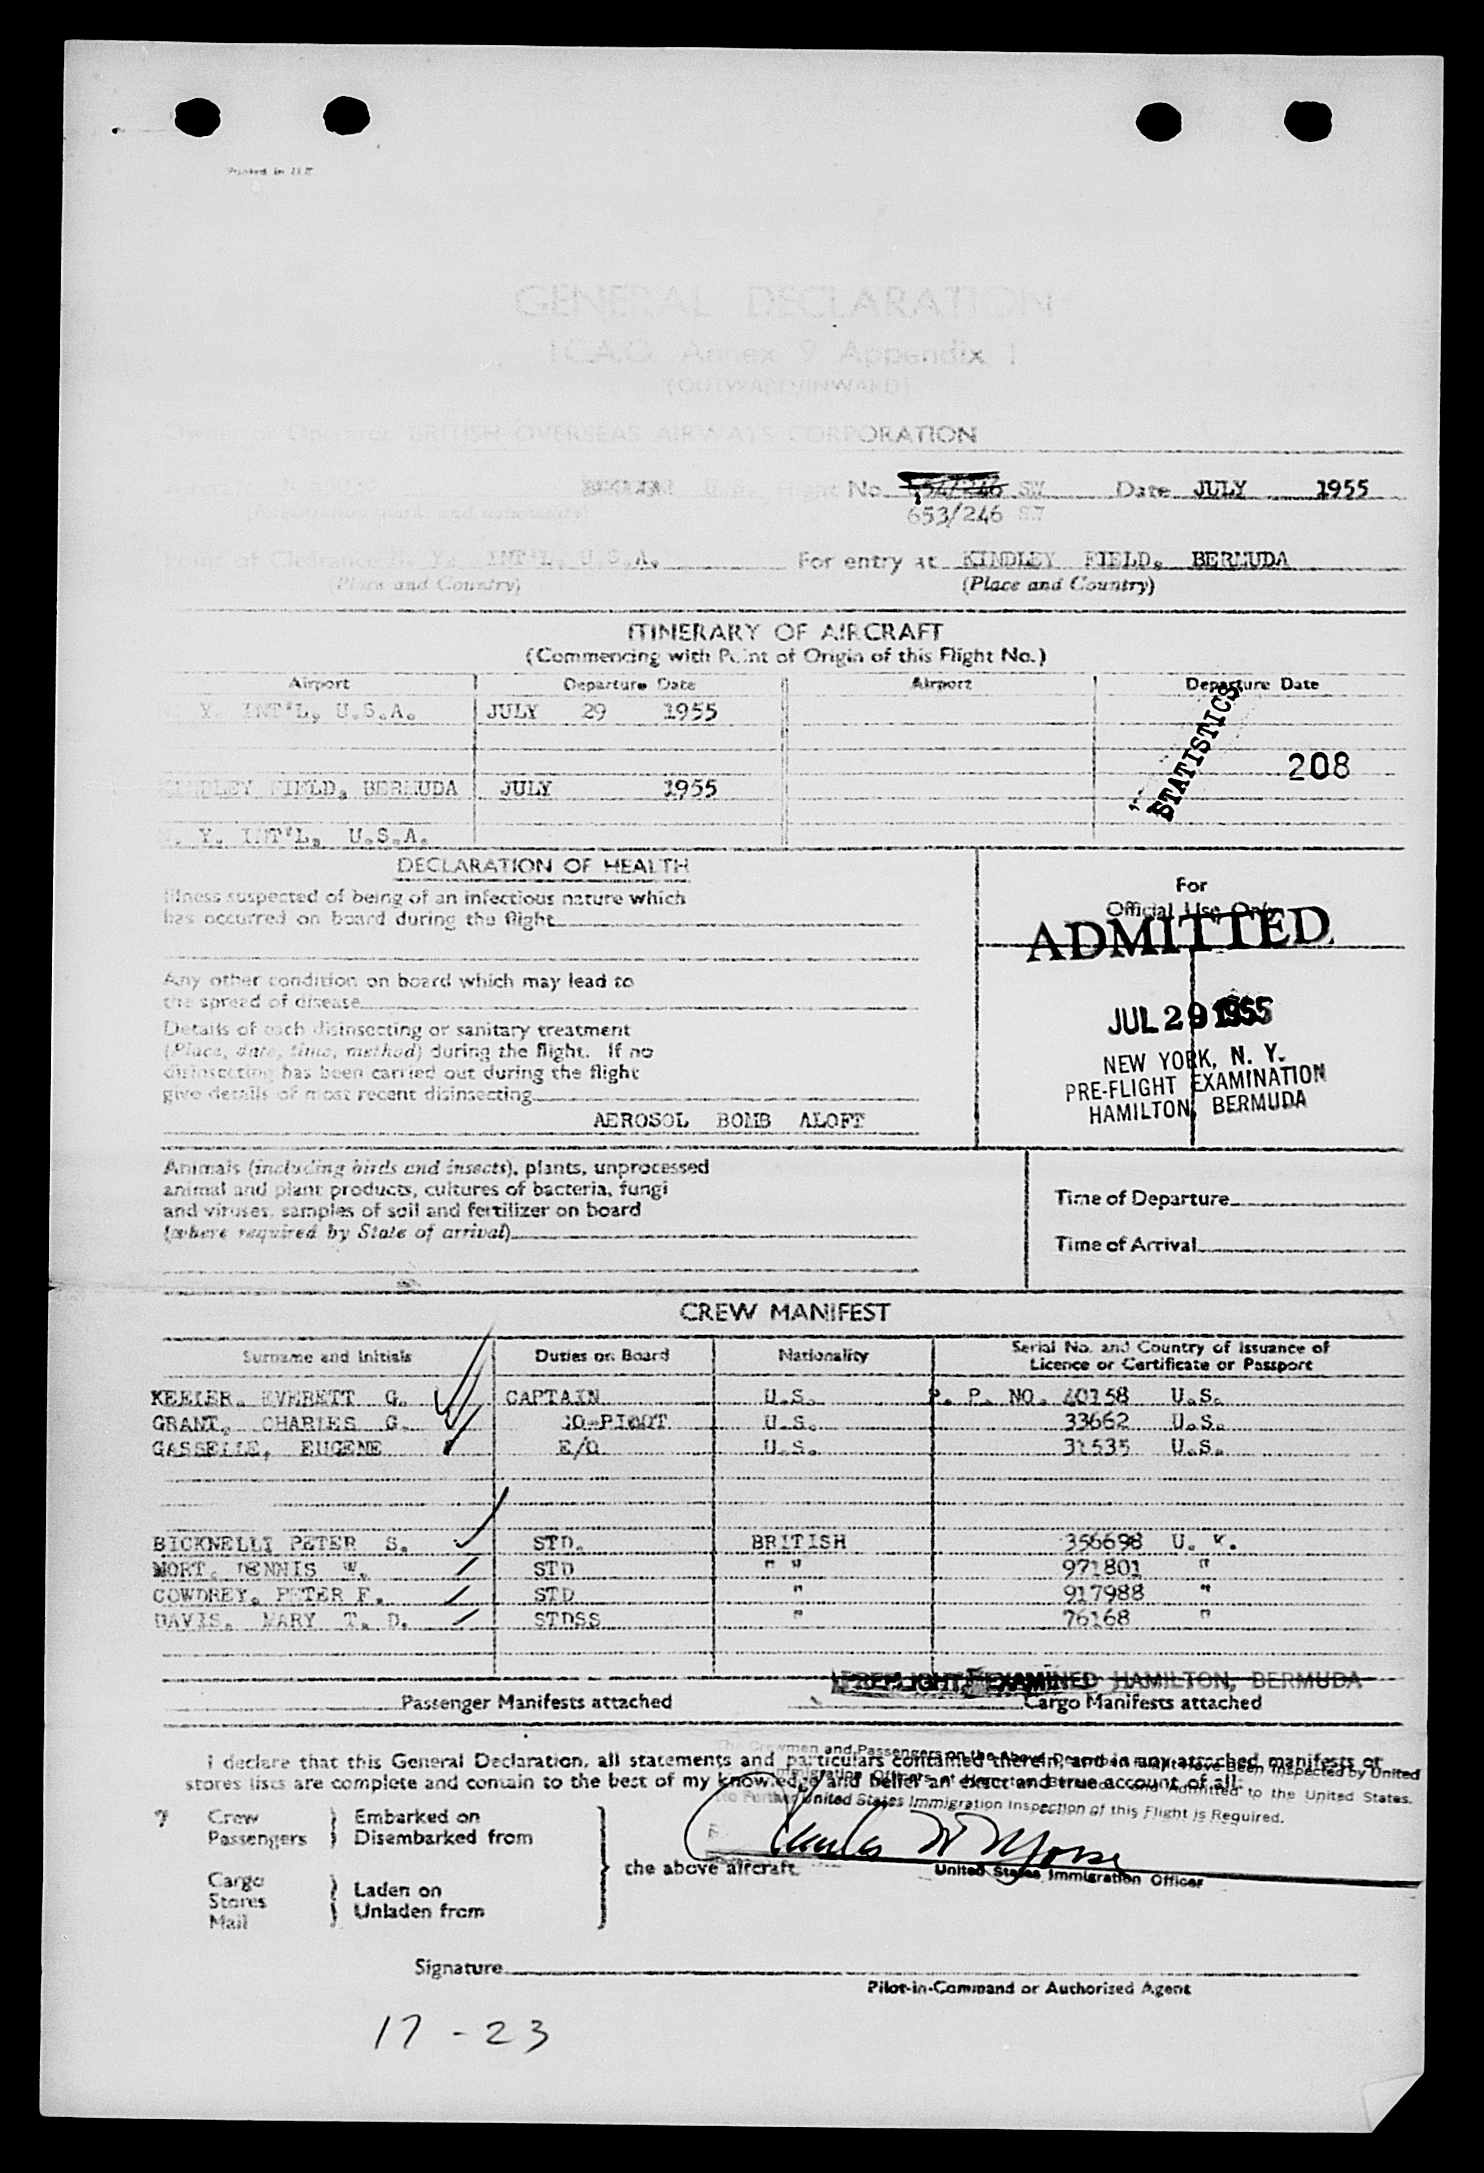 Printed in
GENERAL DECLARATION
I.C.A.O. Annex 9 Appendix I
(OUTWARD/INWARD)
Owner or Operator BRITISH OVERSEAS AIRWAYS CORPORATION
Flight No. 654/246 SW Date JULY 1955
653/246 SW
Point of Clearance N. Y. INT'L, U.S.A. For entry at KINDLEY FIELD, BERMUDA
(Place and Country) (Place and Country)
ITINERARY OF AIRCRAFT
(Commencing with Point of Origin of this Flight No.)
Airport Departure Date Airport Departure Date
Y. INT'L, U.S.A. JULY 29 1955
STATISTICS
208
KINDLEY FIELD, BERMUDA JULY 1955
N. Y. INT'L, U.S.A.
DECLARATION OF HEALTH
For
Official Use Only
Illness suspected of being of an infectious nature which
has occurred on board during the flight
ADMITTED
Any other condition on board which may lead to
the spread of disease
JUL 29 1955
Details of each disinsecting or sanitary treatment
(Place, date, time, method) during the flight. If no
disinsecting has been carried out during the flight
give details of most recent disinsecting
NEW YORK, N. Y.
PRE-FLIGHT EXAMINATION
HAMILTON, BERMUDA
AEROSOL BOMB ALOFT
Animals (including birds and insects), plants, unprocessed
animal and plant products, cultures of bacteria, fungi
and viruses, samples of soil and fertilizer on board
(where required by State of arrival)
Time of Departure
Time of Arrival
CREW MANIFEST
Surname and Initials Duties on Board Nationality Serial No. and Country of Issuance of
Licence or Certificate or Passport
KEELER, EVERETT G. CAPTAIN U.S. P. P. NO. 40158 U.S.
GRANT, CHARLES G. CO-PILOT U.S. 33662 U.S.
GASSELLE, EUGENE E/O U.S. 31535 U.S.
BICKNELL, PETER S. STD. BRITISH 356698 U. K.
MORT, DENNIS W. STD " " 971801 "
COWDREY, PETER F. STD " 917988 "
DAVIS, MARY T. D. STDSS " 76168 "
PREFLIGHT EXAMINED HAMILTON, BERMUDA
Passenger Manifests attached Cargo Manifests attached
I declare that this General Declaration, all statements and particulars contained therein, and in any attached manifests or
stores lists are complete and contain to the best of my knowledge and belief an exact and true account of all:
The Crewmen and Passengers on the Above Described Flight Have Been Inspected by United
Immigration Officers at Hamilton, Bermuda and Admitted to the United States.
No Further United States Immigration Inspection of this Flight is Required.
7 Crew Embarked on
Passengers Disembarked from
the above aircraft.
Charles W Morse
United States Immigration Officer
Cargo
Stores Laden on
Mail Unladen from
Signature
Pilot-in-Command or Authorised Agent
17 - 23